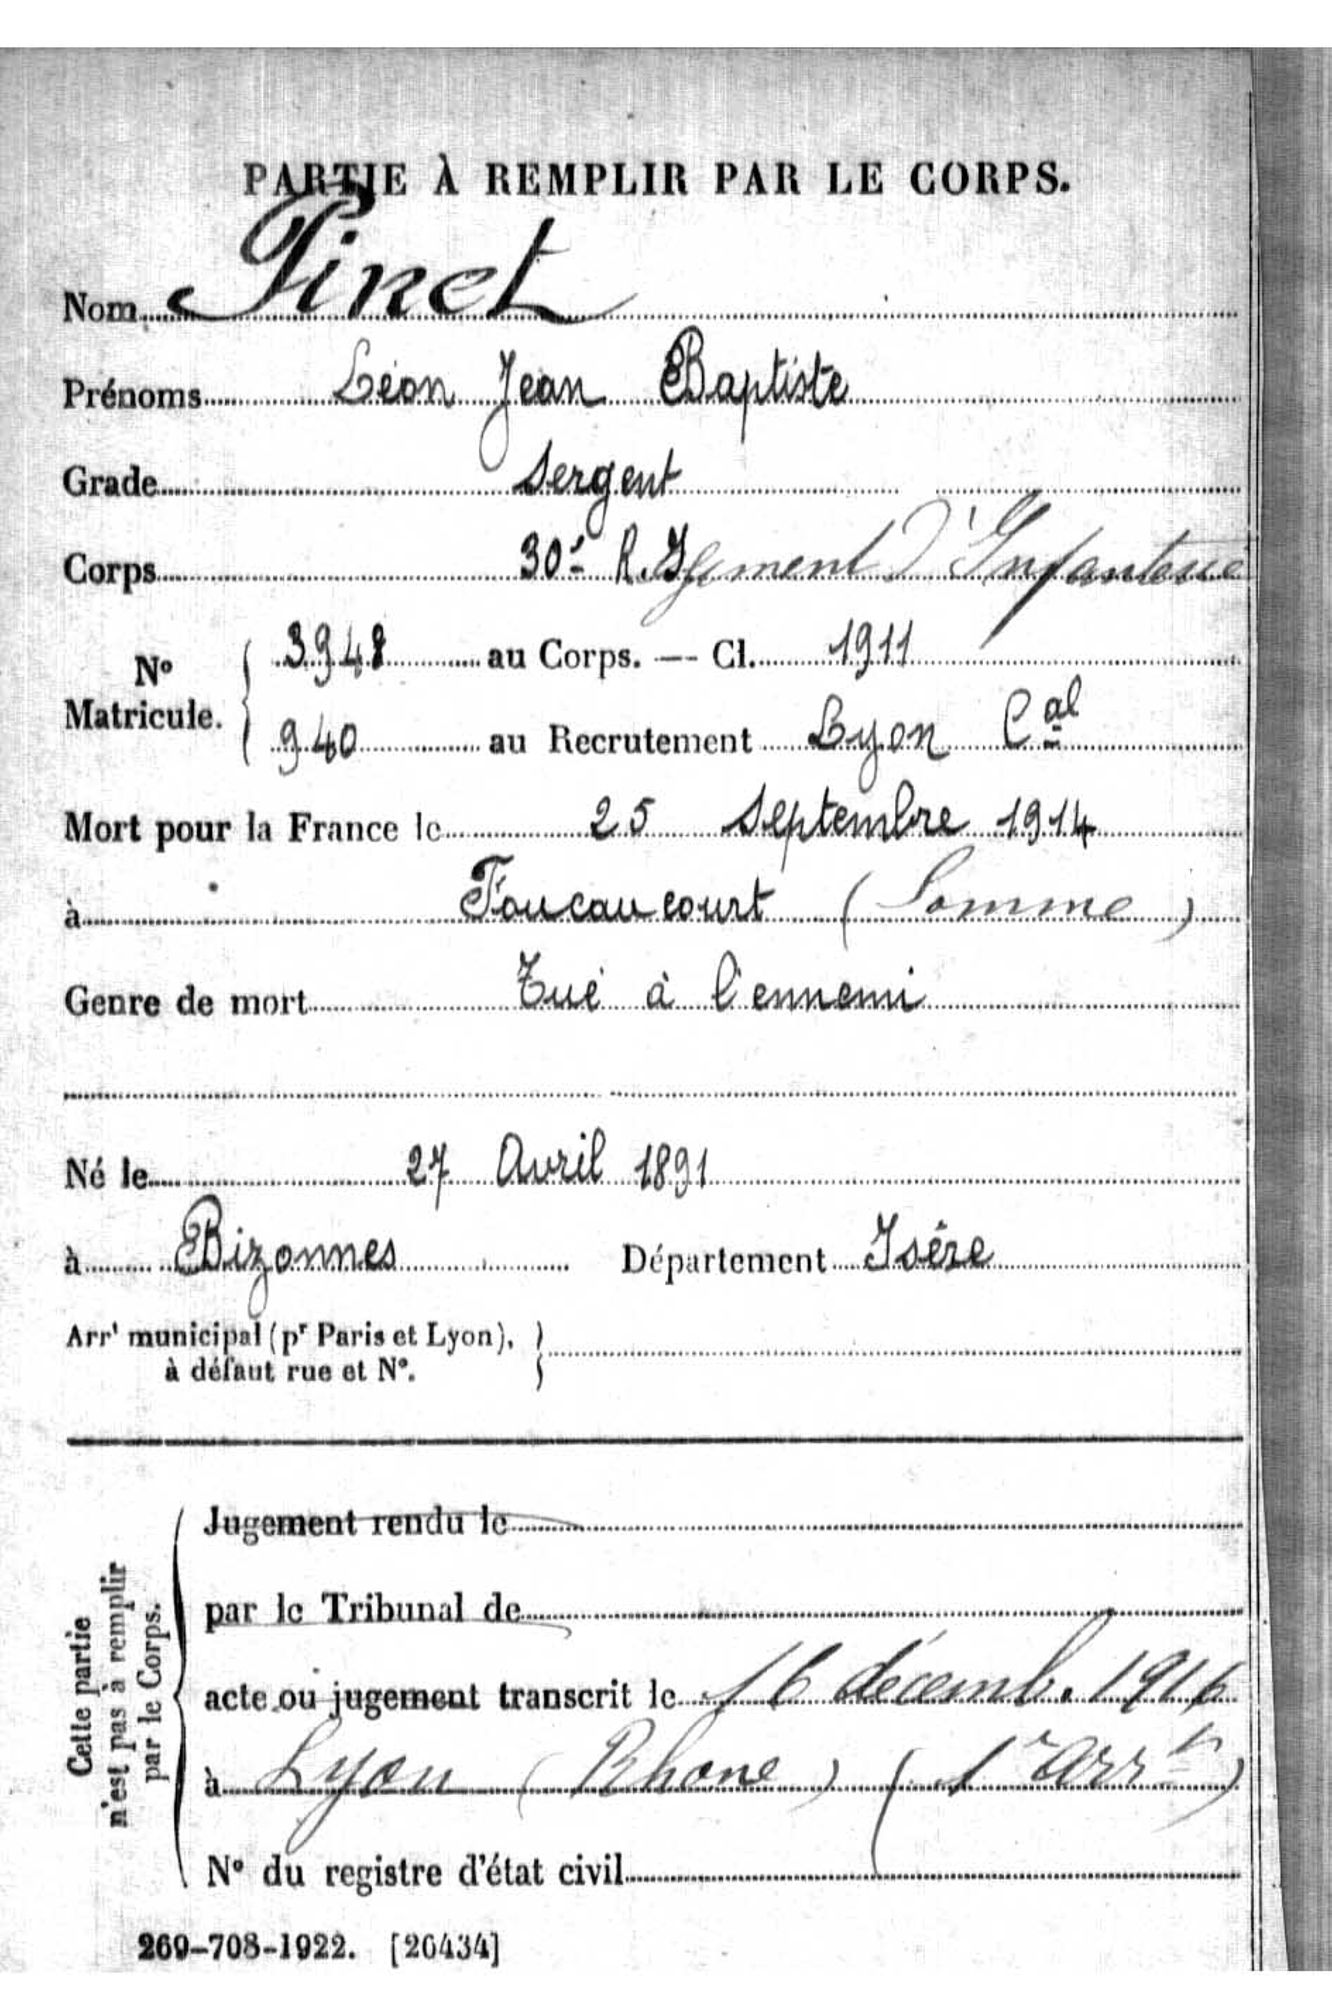 PARTIE À REMPLIR PAR LE CORPS.
Nom Pinet
Prénoms Léon Jean Baptiste
Grade Sergent
Corps 30e R. Igement d'Infanterie
No Matricule. { 3948 au Corps. — Cl. 1911
940 au Recrutement Lyon Cal
Mort pour la France le 25 Septembre 1914
à Foucaucourt (Somme)
Genre de mort Tué à l'ennemi
Né le 27 Avril 1891
à Bizonnes Département Isère
Arrt municipal (pr Paris et Lyon), }
à défaut rue et No.
Cette partie
n'est pas à remplir
par le Corps.
Jugement rendu le
par le Tribunal de
acte ou jugement transcrit le 16 décemb. 1916
à Lyon (Rhone) (1r arrt)
No du registre d'état civil
269-708-1922. [26434]